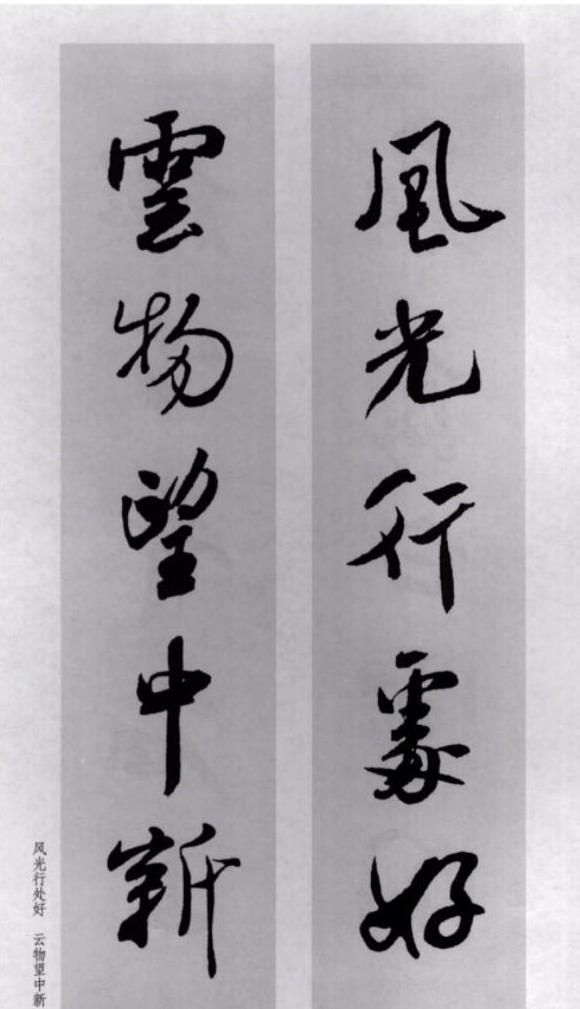 風光行處好
雲物望中新
风光行处好　云物望中新